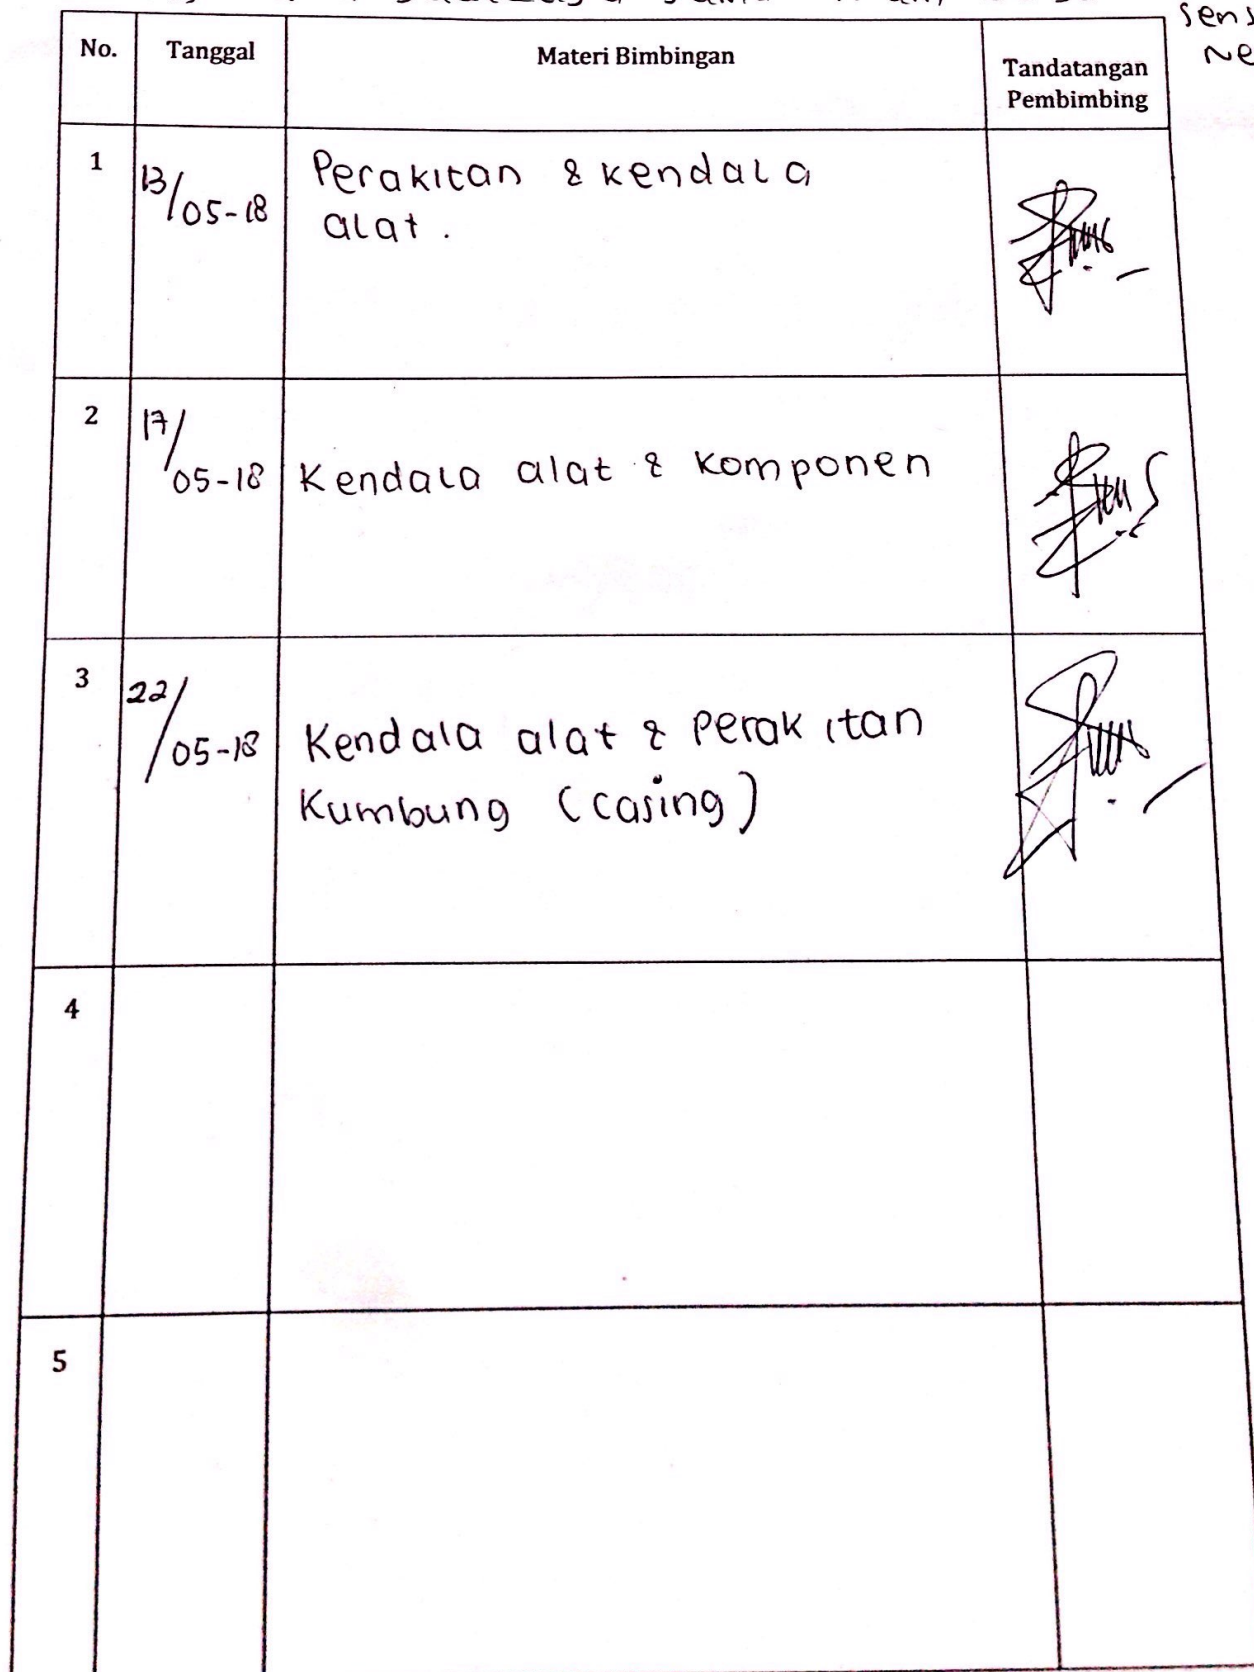 sens
Ne
No. Tanggal Materi Bimbingan Tandatangan
Pembimbing
1 13/05-18 Perakitan & kendala
alat.
2 17/05-18 Kendala alat & komponen
3 22/05-18 Kendala alat & perakitan
Kumbung (casing)
4
5